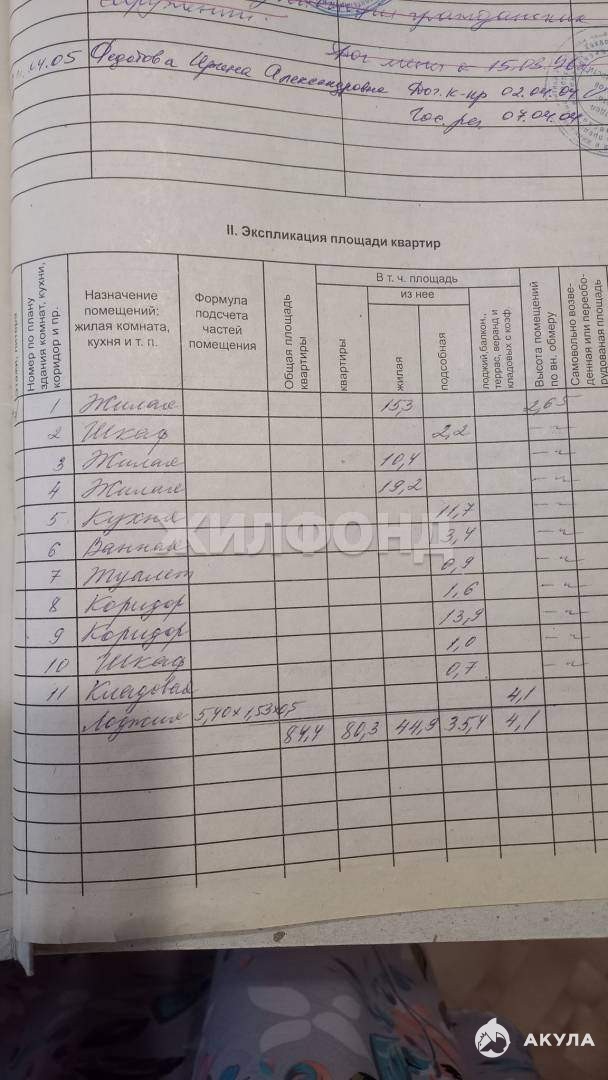 сооружений.
гражданских
Срок мены с 15.03.
04.05 Федотова Ирина Александровна Дог. к-пр 02.04.04
Гос. рег 07.04.04
II. Экспликация площади квартир
Номер по плану здания комнат, кухни, коридор и пр.
Назначение помещений: жилая комната, кухня и т. п.
Формула подсчета частей помещения
Общая площадь квартиры
В т. ч. площадь
квартиры
из нее
жилая
подсобная
лоджий, балкон., террас, веранд и кладовых с коэф.
Высота помещений по вн. обмеру
Самовольно возведенная или переоборудованная площадь
1 Жилая 15,3 2,65
2 Шкаф 2,2 –"–
3 Жилая 10,4 –"–
4 Жилая 19,2 –"–
5 Кухня 11,7 –"–
6 Ванная 3,4 –"–
7 Туалет 0,9 –"–
8 Коридор 1,6 –"–
9 Коридор 13,9 –"–
10 Шкаф 1,0 –"–
11 Кладовая 0,7 –"–
Лоджия 5,40×1,53×0,5 4,1
84,4 80,3 44,9 35,4 4,1
ЖИЛФОНД
АКУЛА